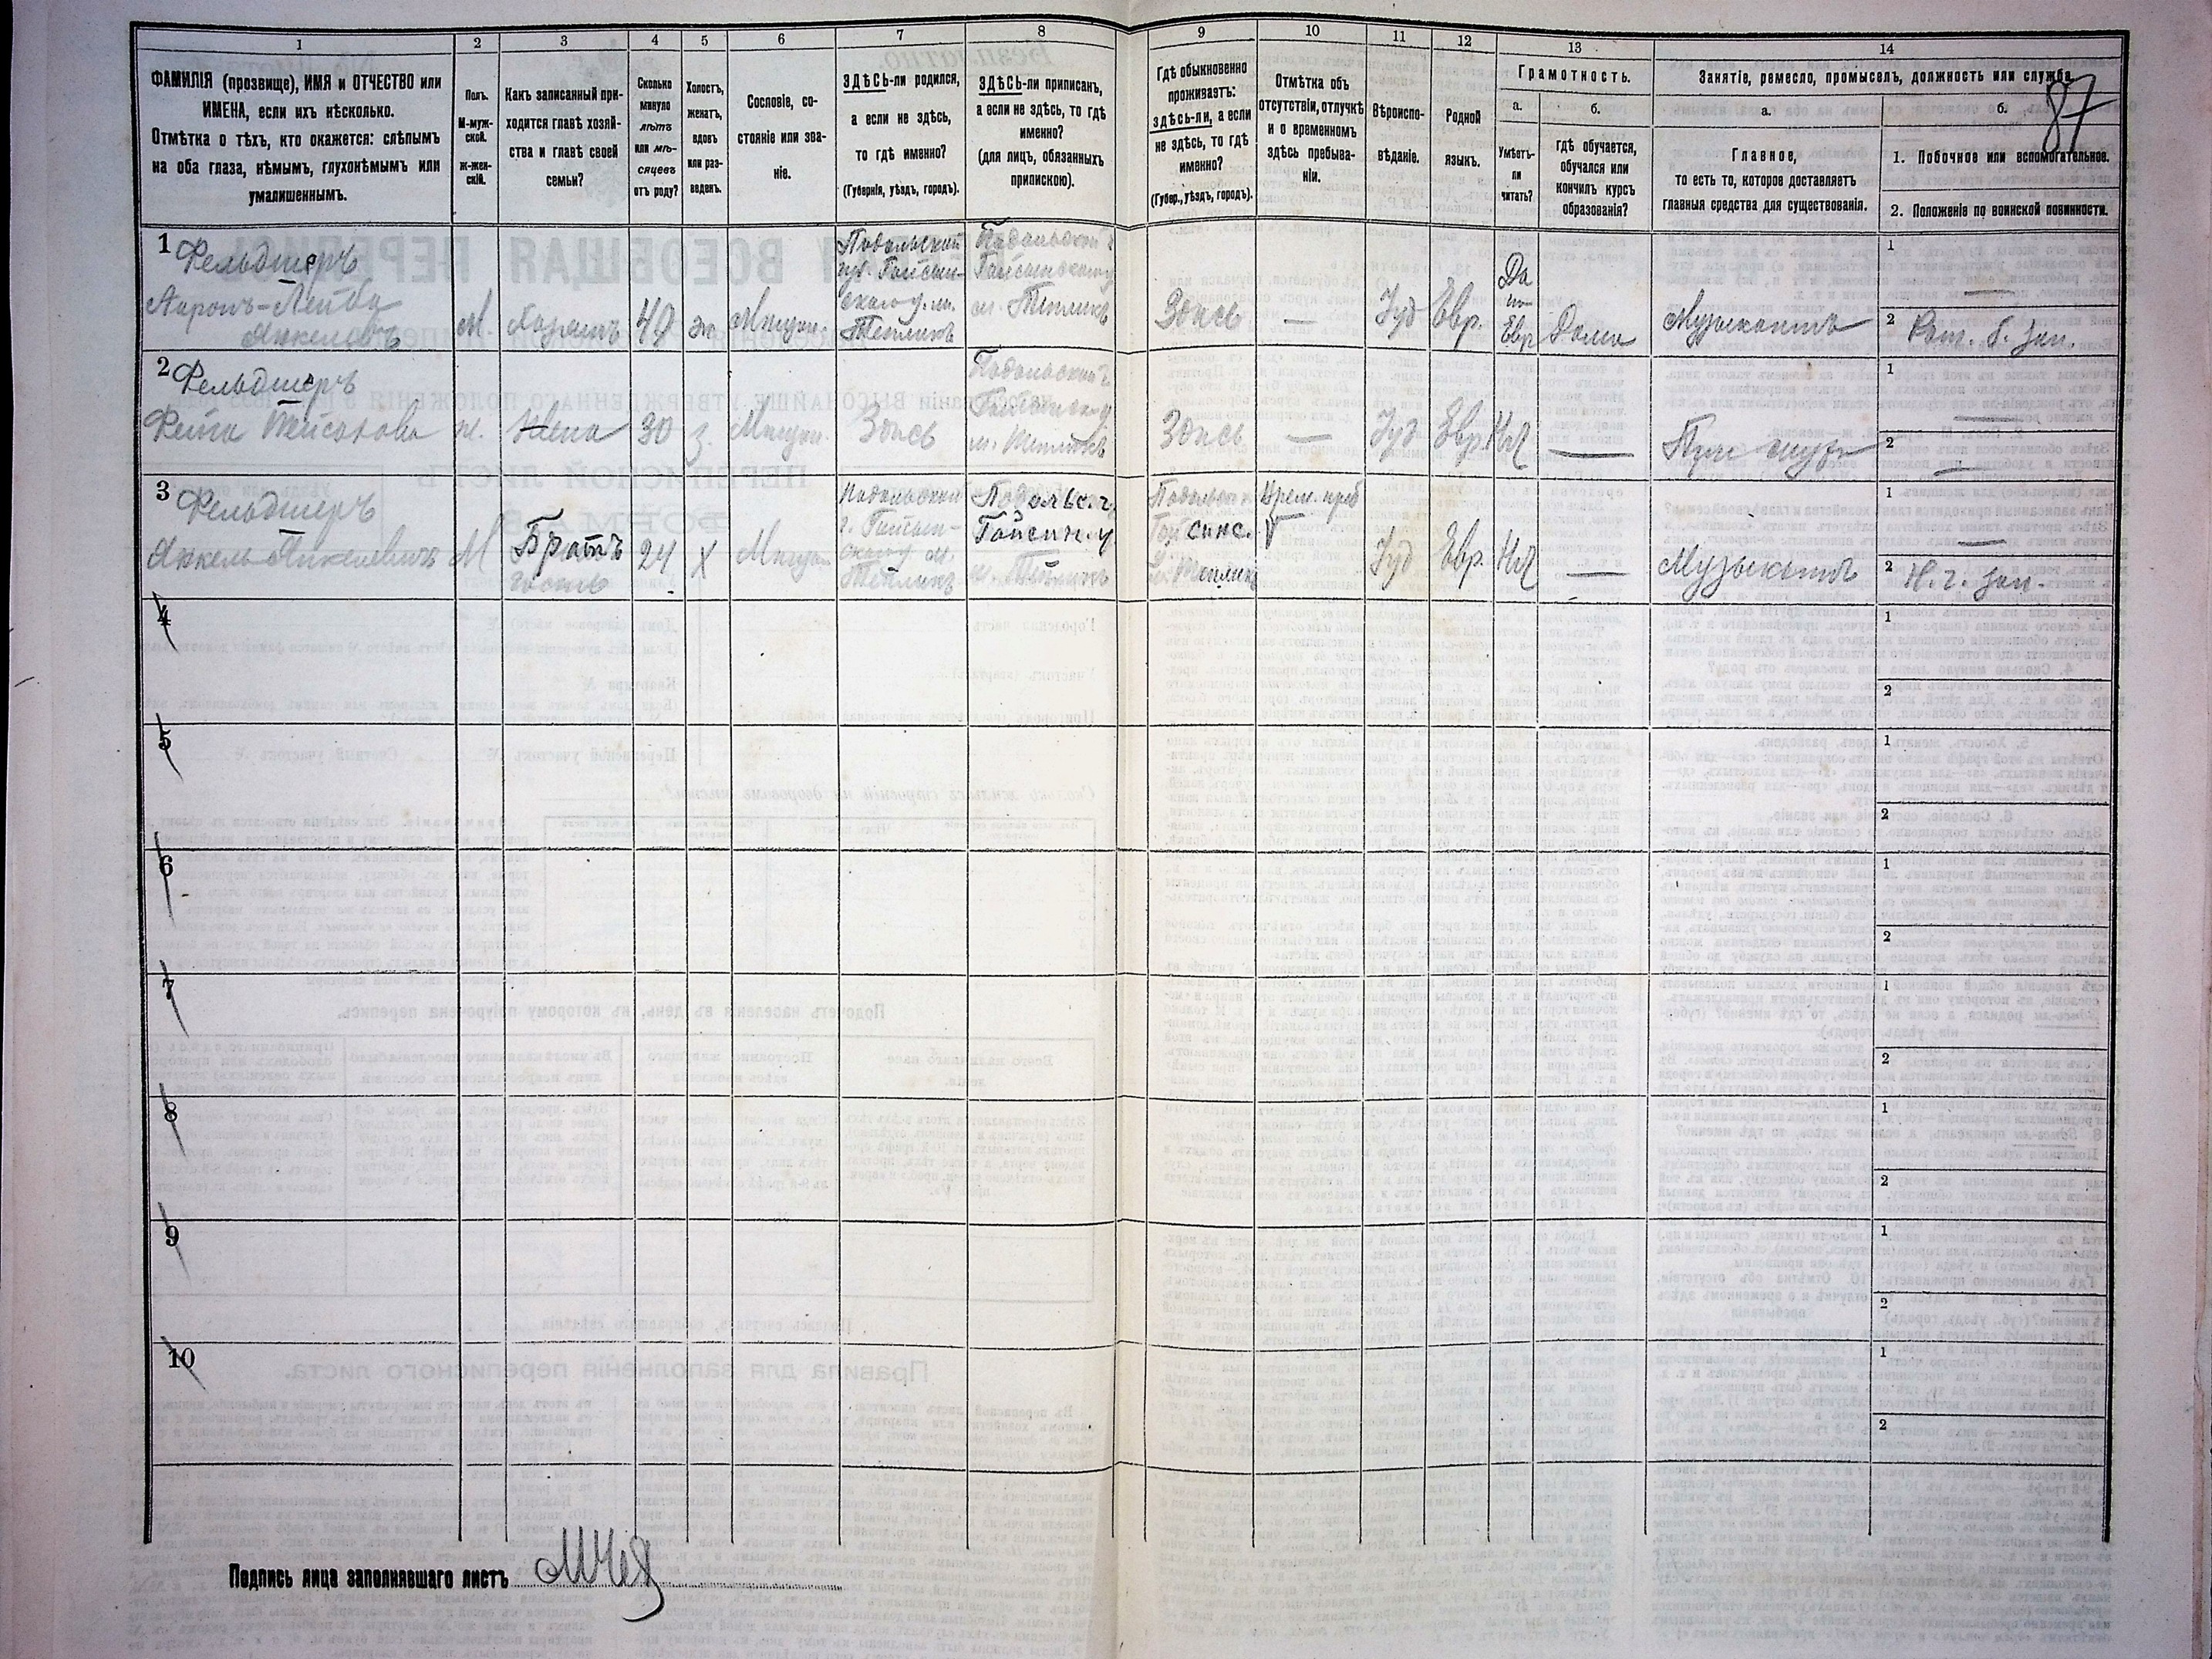 1 2 3 4 5 6 7 8 9 10 11 12 13 14
ФАМИЛІЯ (прозвище), ИМЯ и ОТЧЕСТВО или
ИМЕНА, если ихъ нѣсколько.
Отмѣтка о тѣхъ, кто окажется: слѣпымъ
на оба глаза, нѣмымъ, глухонѣмымъ или
умалишеннымъ.
Полъ.
М-муж-
ской.
Ж-жен-
скій.
Какъ записанный при-
ходится главѣ хозяй-
ства и главѣ своей
семьи?
Сколько
минуло
лѣтъ
или мѣ-
сяцевъ
отъ роду?
Холостъ,
женатъ,
вдовъ
или раз-
веденъ.
Сословіе, со-
стояніе или зва-
ніе.
ЗДѢСЬ-ли родился,
а если не здѣсь,
то гдѣ именно?
(Губернія, уѣздъ, городъ).
ЗДѢСЬ-ли приписанъ,
а если не здѣсь, то гдѣ
именно?
(для лицъ, обязанныхъ
припискою).
Гдѣ обыкновенно
проживаетъ:
здѣсь-ли, а если
не здѣсь, то гдѣ
именно?
(Губер., уѣздъ, городъ).
Отмѣтка объ
отсутствіи, отлучкѣ
и о временномъ
здѣсь пребыва-
ніи.
Вѣроиспо-
вѣданіе.
Родной
языкъ.
Грамотность.
а.
Умѣетъ-
ли
читать?
б.
гдѣ обучается,
обучался или
кончилъ курсъ
образованія?
Занятіе, ремесло, промыселъ, должность или служба.
87
а.
Главное,
то есть то, которое доставляетъ
главныя средства для существованія.
б.
1. Побочное или вспомогательное.
2. Положеніе по воинской повинности.
1
Фельдшеръ
Ааронъ-Лейба
Янкелевъ
М
Хозяинъ
49
ж
Мѣщан.
Подольской
губ. Гайсин-
скаго у. м.
Тепликъ
Подольской г.
Гайсинскаго у
м. Тепликъ
Здѣсь
—
Іуд
Евр.
Да
по
Евр
Дома
Музыкантъ
1 —
2
2
Фельдшеръ
ж.
Жена
30
з.
Мѣщан.
Здѣсь
Подольской г.
Гайсинск у
м. Тепликъ
Здѣсь
—
Іуд
Евр.
Нѣт
—
При мужѣ
1 —
2 —
3
Фельдшеръ
Янкель Янкелевичъ
М
Братъ
гость
24
Х
Мѣщан
Подольской
г. Гайсин-
скаго у м.
Тепликъ
Подольс. г.
Гайсин. у
м. Тепликъ
Подольск
Гайсинс.
у. м. Теплик
Врем. преб
Іуд
Евр.
Нѣт
—
Музыкантъ
1 —
2
4 1
2
5 1
2
6 1
2
7 1
2
8 1
2
9 1
2
10 1
2
Подпись лица заполнявшаго листъ